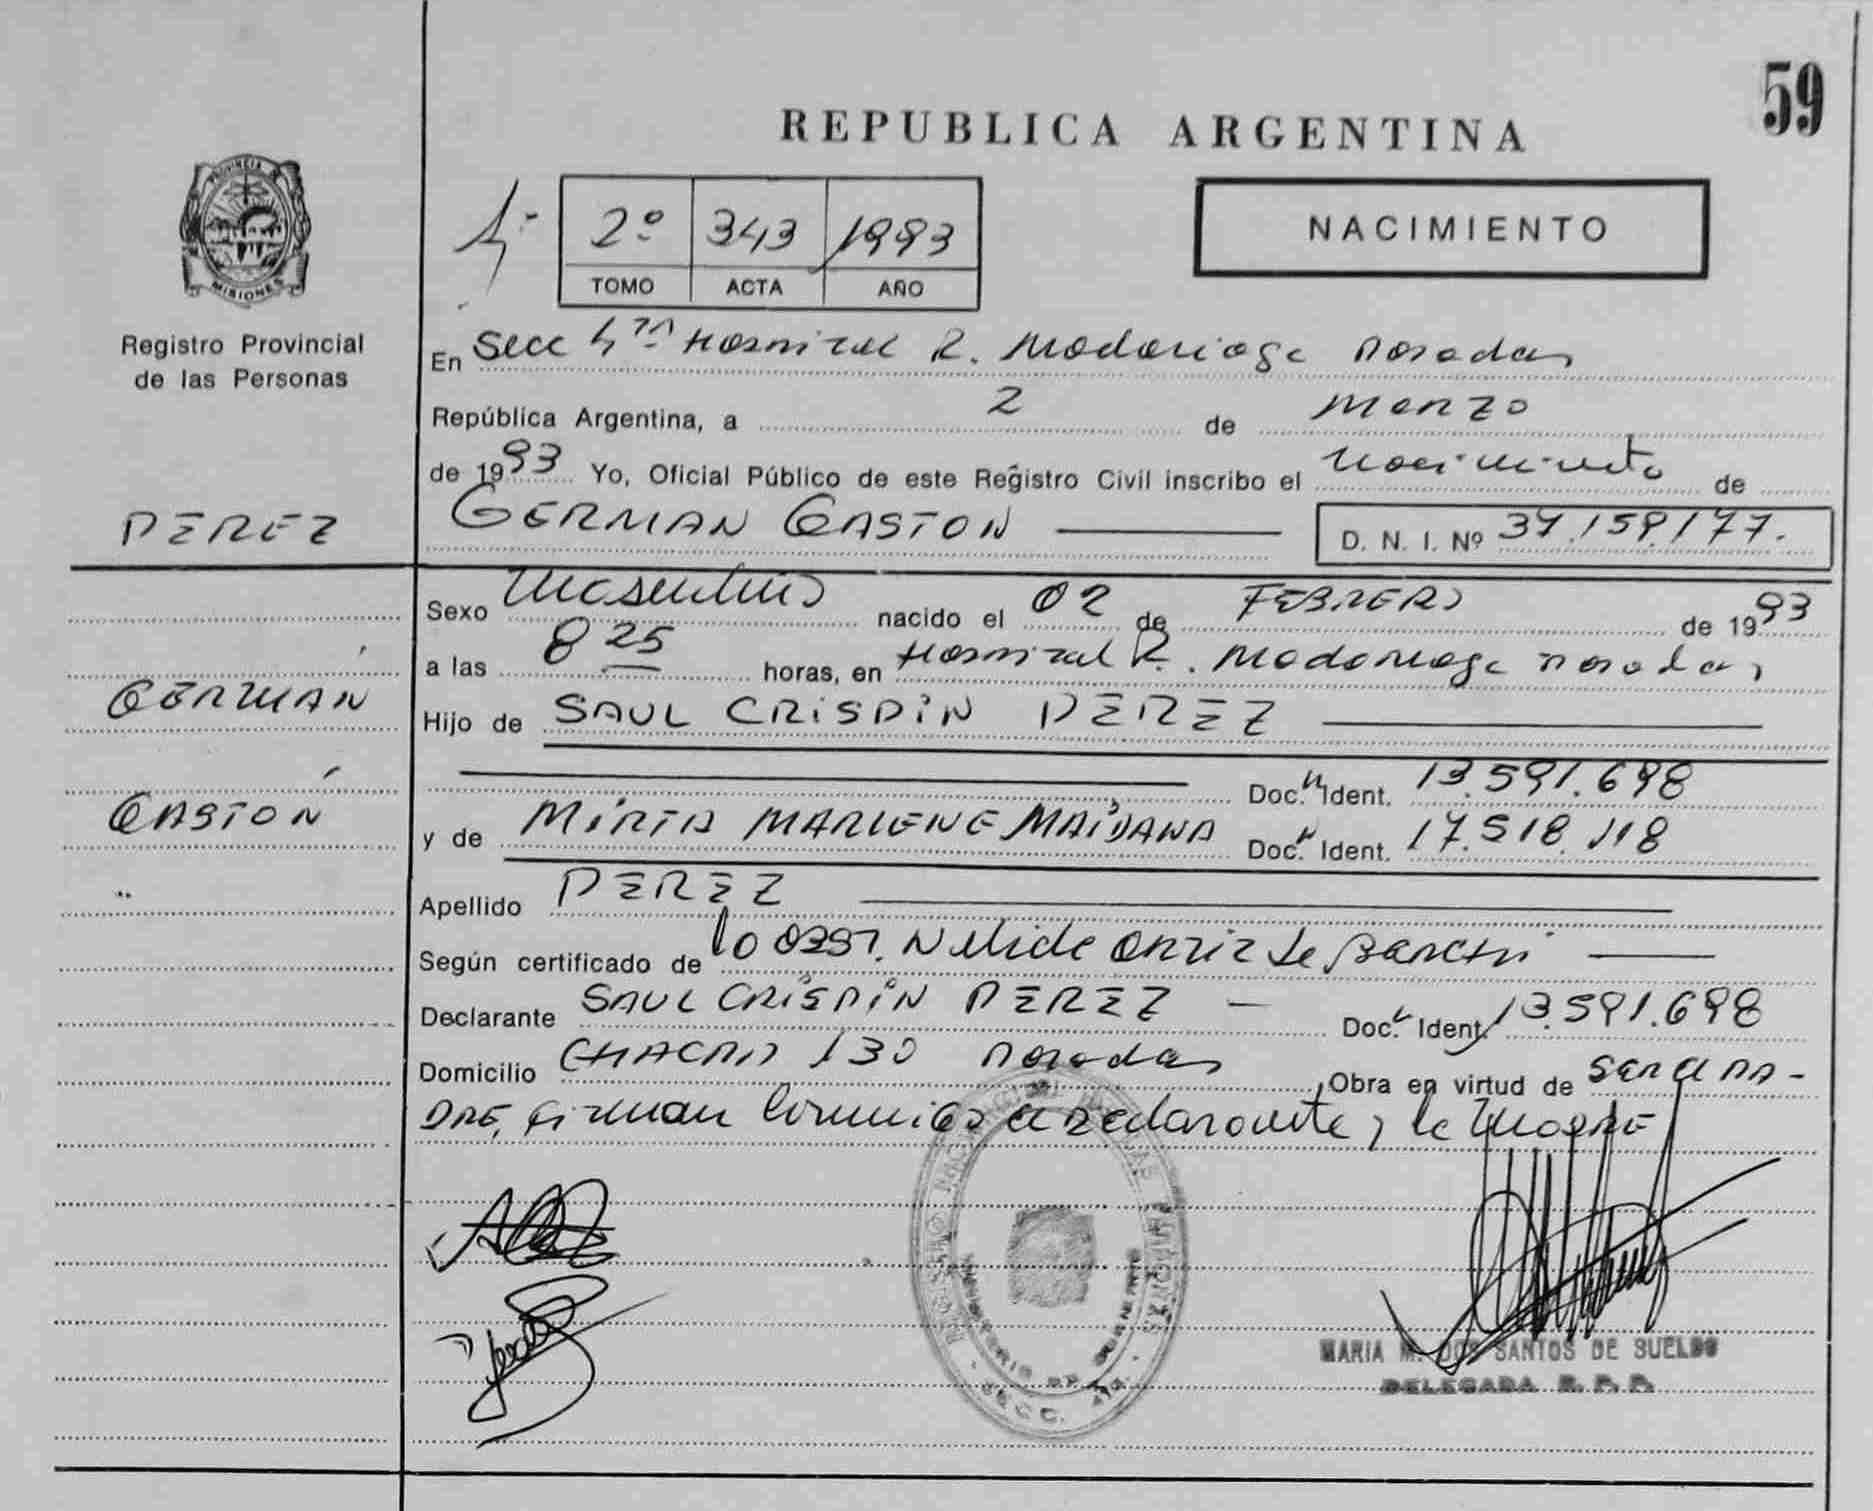 59
REPUBLICA ARGENTINA
PROVINCIA DE
MISIONES
Registro Provincial
de las Personas
2º 343 1993
TOMO ACTA AÑO
NACIMIENTO
En Secc 4ta Hospital R. Madariaga Posadas
República Argentina, a 2 de Marzo
de 1993 Yo, Oficial Público de este Registro Civil inscribo el nacimiento de
PEREZ GERMAN GASTON D. N. I. Nº 37.159.177.
Sexo Masculino nacido el 02 de FEBRERO de 1993
a las 8 25 horas, en Hospital R. Madariaga Posadas
GERMAN
Hijo de SAUL CRISPIN PEREZ
Doc. Ident. 13.591.698
GASTON
y de MIRTA MARLENE MAIDANA Doc. Ident. 17.518.118
Apellido PEREZ
Según certificado de la Obst. Nelide Ortiz de
Declarante SAUL CRISPIN PEREZ Doc. Ident. 13.591.698
Domicilio CHACRA 130 Posadas Obra en virtud de SER EL PA-
DRE, firman conmigo el declarante y la MADRE
MARIA M. DOS SANTOS DE SUELDO
DELEGADA R. P. P.